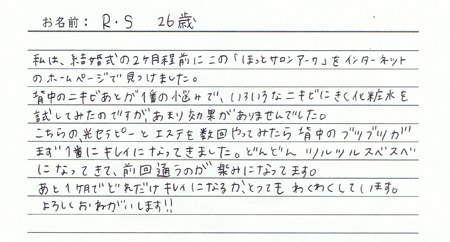 お名前： R・S 26歳
私は、結婚式の2ヶ月程前にこの「ほっとサロンアーク」をインターネット
のホームページで見つけました。
背中のニキビあとが1番の悩みで、いろいろなニキビにきく化粧水を
試してみたのですがあまり効果がありませんでした。
こちらの、光セラピーとエステを数回やってみたら背中のブツブツが
まず1番にキレイになってきました。どんどんツルツルスベスベ
になってきて、前回通うのが楽みになってます。
あと1ヶ月でどれだけキレイになるか、とってもわくわくしています。
よろしくおねがいします!!